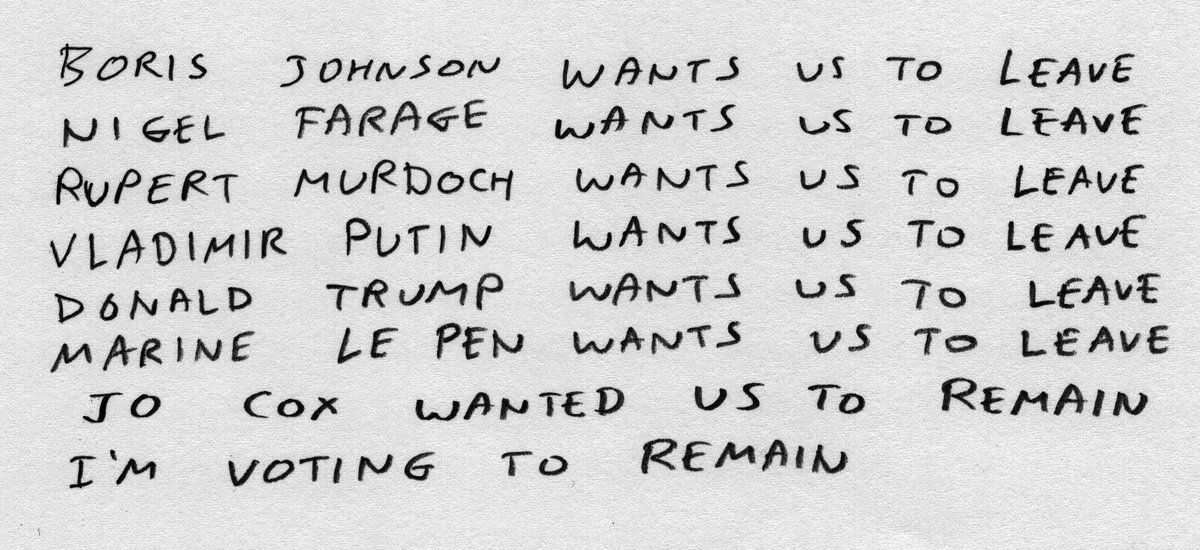 BORIS JOHNSON WANTS US TO LEAVE
NIGEL FARAGE WANTS US TO LEAVE
RUPERT MURDOCH WANTS US TO LEAVE
VLADIMIR PUTIN WANTS US TO LEAVE
DONALD TRUMP WANTS US TO LEAVE
MARINE LE PEN WANTS US TO LEAVE
JO COX WANTED US TO REMAIN
I'M VOTING TO REMAIN